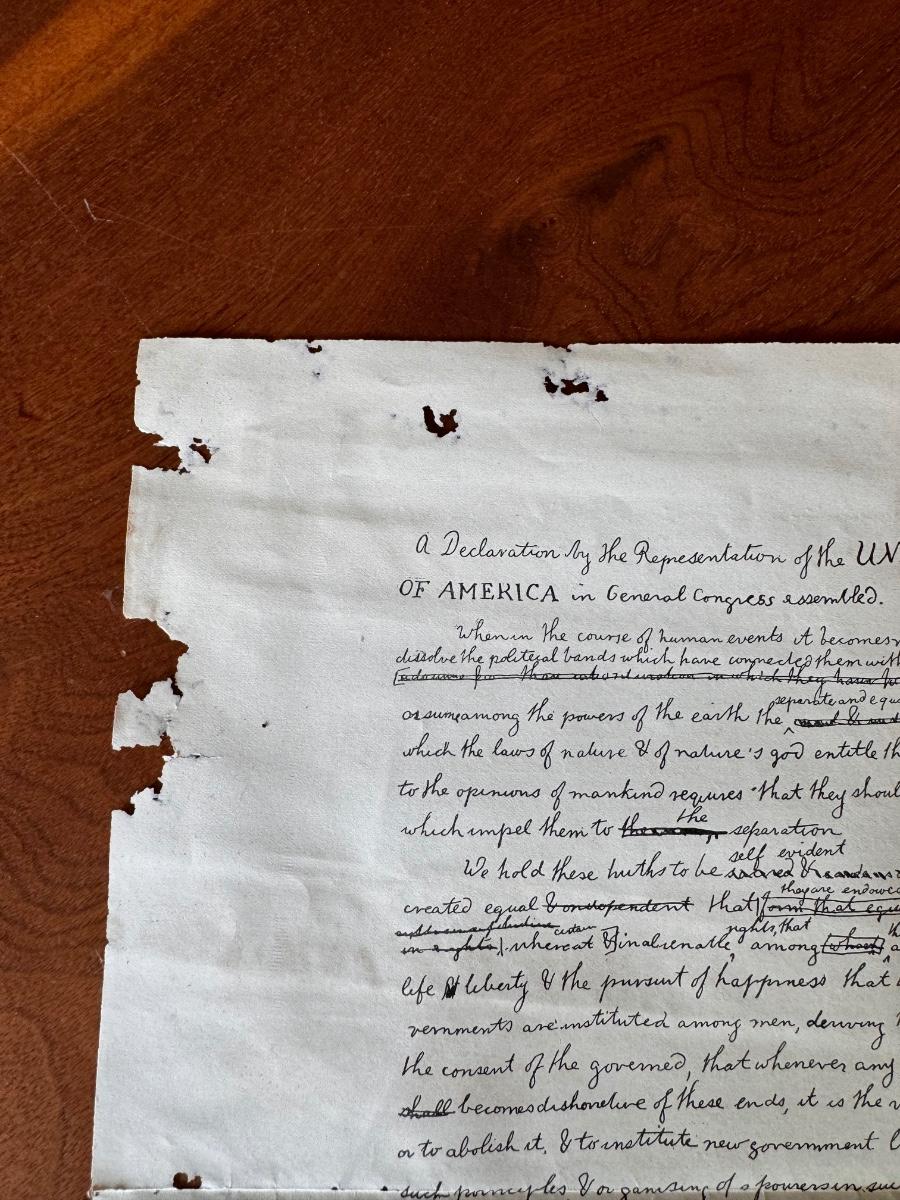 A Declaration by the Representation of the UN
OF AMERICA in General Congress assembled.
When in the course of human events it becomes
dissolve the political bands which have connected them with
in which they have
separate and equ
assume among the powers of the earth the
which the laws of nature & of nature's god entitle th
to the opinions of mankind requires that they shoul
the
which impel them to separation
self evident
We hold these truths to be sacred &
they are endowed
created equal & independent that form that equ
certain rights, that
in rights inalienable among
life & liberty & the pursuit of happiness that
vernments are instituted among men, deriving
the consent of the governed, that whenever any
shall becomes of these ends, it is the
or to abolish it, & to institute new government
such principles & organising powers in suc